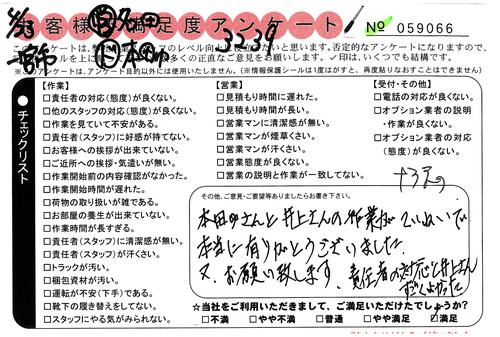 お客様満足度アンケート
3539
№ 059066
このアンケートは、
レベル向上
と思います。否定的なアンケートになりますので、
多くの正直なご意見をお願いします。✓印は、いくつでも結構です。
※このアンケートは、アンケート目的以外には使用いたしません。（※情報保護シールは1度はがすと、再度貼りなおすことはできません）
チェックリスト
【作業】
□責任者の対応（態度）が良くない。
□他のスタッフの対応（態度）が良くない。
□作業を見ていて不安がある。
□責任者（スタッフ）に好感が持てない。
□お客様への挨拶が出来ていない。
□ご近所への挨拶・気遣いが無い。
□作業開始前の内容確認がなかった。
□作業開始時間が遅れた。
□荷物の取り扱いが雑である。
□お部屋の養生が出来ていない。
□作業時間が長すぎる。
□責任者（スタッフ）に清潔感が無い。
□責任者（スタッフ）が汗くさい。
□トラックが汚い。
□梱包資材が汚い。
□運転が不安（下手）である。
□靴下の履き替えをしてくれない。
□スタッフにやる気がみられない。
【営業】
□見積もり時間に遅れた。
□見積もり時間が長い。
□営業マンに清潔感が無い。
□営業マンが煙草くさい。
□営業マンが汗くさい。
□営業態度が良くない。
□営業の説明と作業が一致してない。
【受付・その他】
□電話の対応が良くない。
□オプション業者の説明
・作業が良くない。
□オプション業者の対応
（態度）が良くない。
その他、ご意見・ご要望等ありましたらお書き下さい。
本田さんと井上さんの作業がていねいで
本当に有りがとうございました
又、お願い致します。責任者の対応と井上さん
よかった
☆当社をご利用いただきまして、ご満足いただけたでしょうか？
□不満 □やや不満 □普通 □やや満足 ☑満足